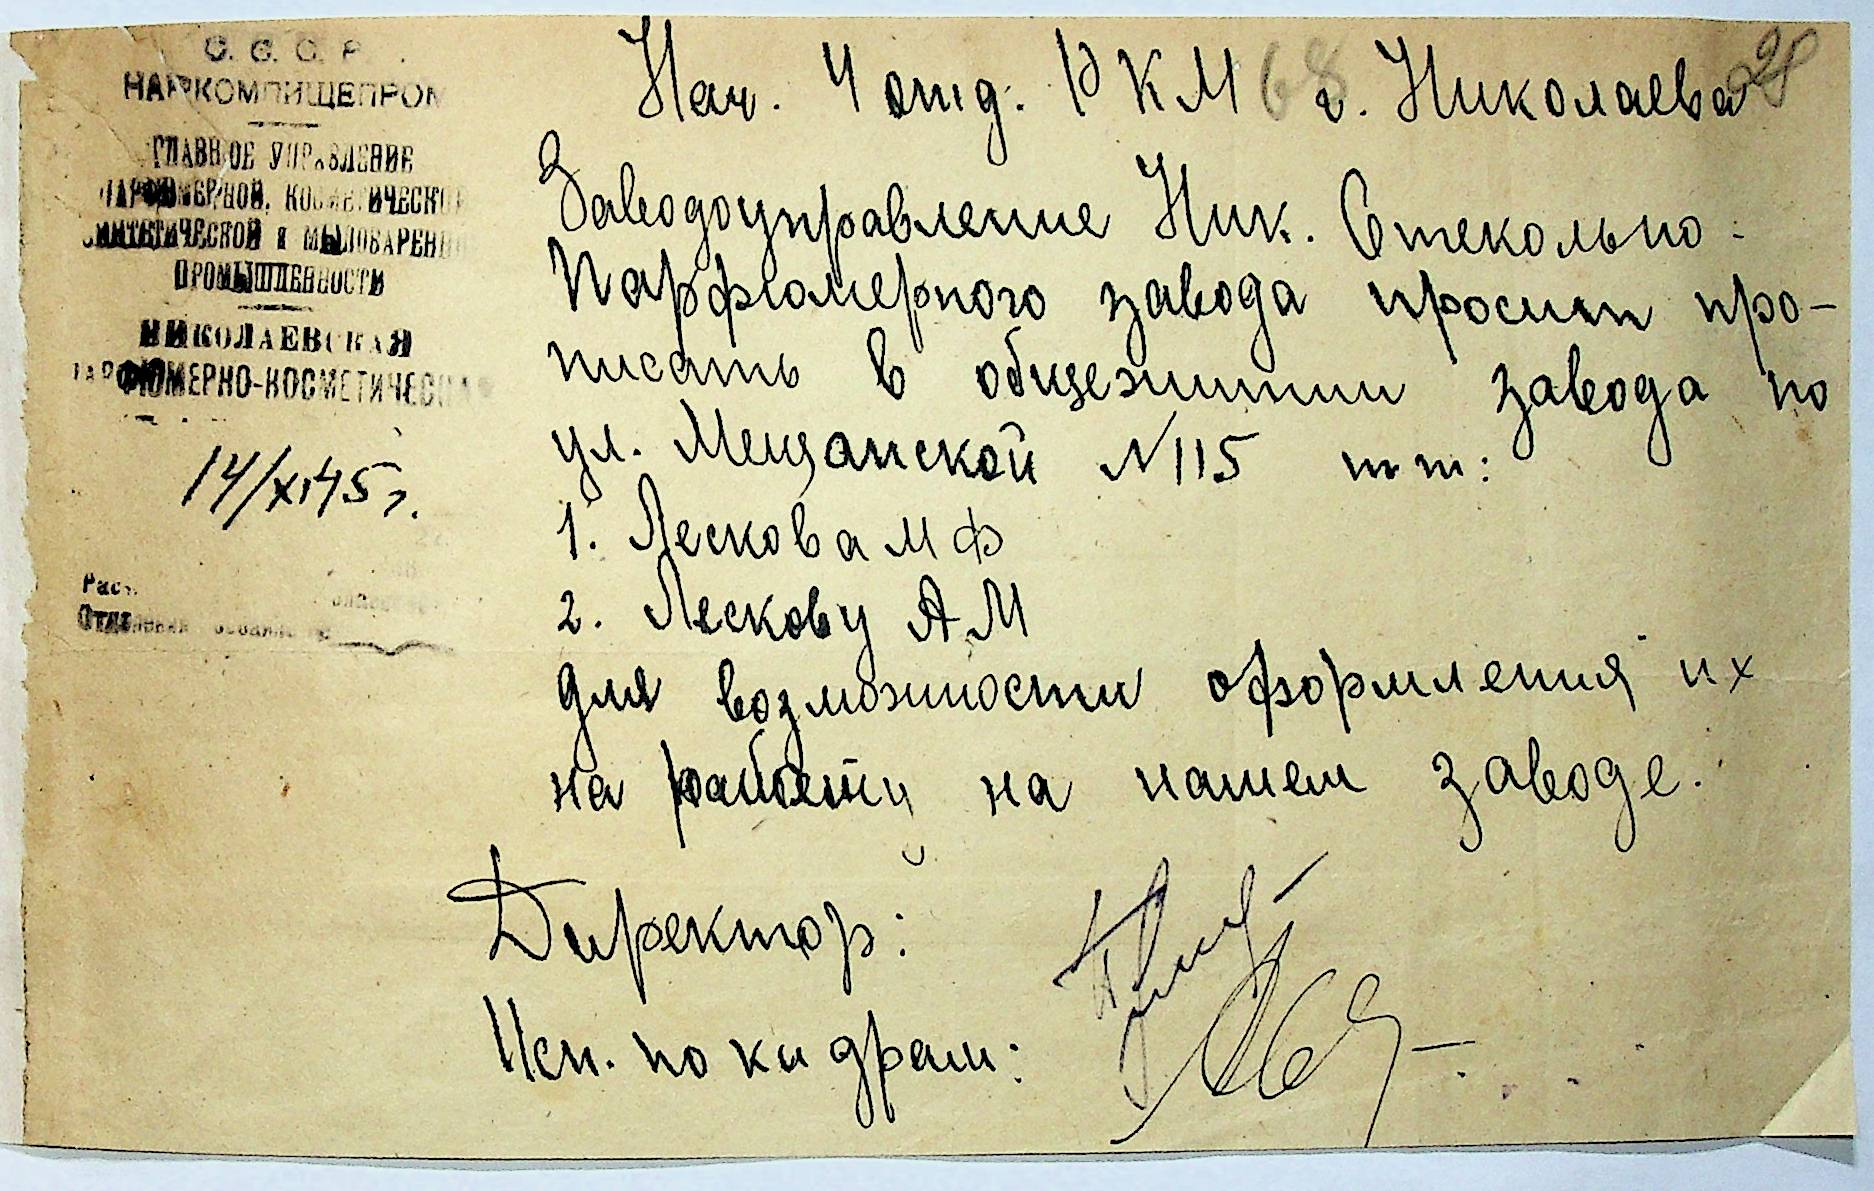 С. С. С. Р.
НАРКОМПИЩЕПРОМ
ГЛАВНОЕ УПРАВЛЕНИЕ
ПАРФЮМЕРНОЙ, КОСМЕТИЧЕСКОЙ
СИНТЕТИЧЕСКОЙ и МЫЛОВАРЕННОЙ
ПРОМЫШЛЕННОСТИ
НИКОЛАЕВСКАЯ
ПАРФЮМЕРНО-КОСМЕТИЧЕСКАЯ
14/XI 45 г.
Нач. 4 отд. РКМ 68 г. Николаева 28
Заводоуправление Ник. Стекольно-
Парфюмерного завода просит про-
писать в общежитии завода по
ул. Мещанской № 115 т т:
1. Лескова М Ф
2. Лескову А М
для возможности оформления их
на работу на нашем заводе.
Директор:
Исп. по кадрам: